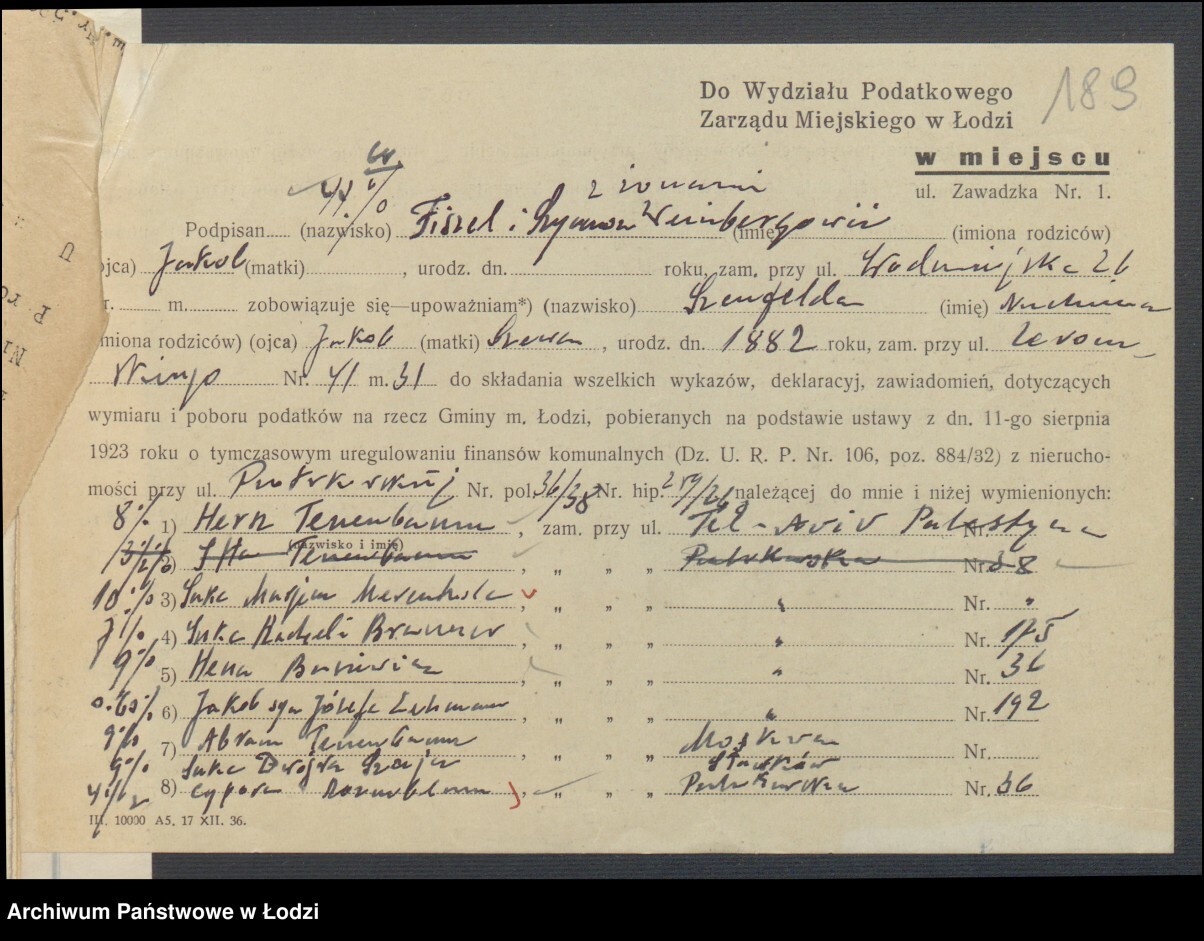 189
Do Wydziału Podatkowego
Zarządu Miejskiego w Łodzi
w miejscu
ul. Zawadzka Nr. 1.
z żonami
Podpisan...... (nazwisko) Fiszel i Szymon Weinbergowie (imię) (imiona rodziców)
(ojca) Jakob (matki) , urodz. dn. roku, zam. przy ul. 26
m. zobowiązuje się—upoważniam*) (nazwisko) Szenfelda (imię) Nuchima
(imiona rodziców) (ojca) Jakob (matki) , urodz. dn. 1882 roku, zam. przy ul. Żerom-
skiego Nr. 41 m. 31 do składania wszelkich wykazów, deklaracyj, zawiadomień, dotyczących
wymiaru i poboru podatków na rzecz Gminy m. Łodzi, pobieranych na podstawie ustawy z dn. 11-go sierpnia
1923 roku o tymczasowym uregulowaniu finansów komunalnych (Dz. U. R. P. Nr. 106, poz. 884/32) z nierucho-
mości przy ul. Piotrkowskiej Nr. pol. 36/38 Nr. hip. należącej do mnie i niżej wymienionych:
8% 1) Hersz Tenenbaum , zam. przy ul. Tel-Aviv Palestyna Nr.
(nazwisko i imię)
2) Tenenbaum , „ „ „ Piotrkowska Nr. 38
10% 3) Suke Marjem , „ „ „ „ Nr. „
4) Suke , „ „ „ „ Nr. 175
9% 5) Hena , „ „ „ „ Nr. 36
6) Jakob syn Józefa Lehman , „ „ „ „ Nr. 192
9% 7) Abram Tenenbaum , „ „ „ Moskwa Nr.
9% Suke Dwojra Szaja
8) Cypora Rozenblum , „ „ „ Piotrkowska Nr. 36
III. 10000 A5. 17 XII. 36.
Archiwum Państwowe w Łodzi